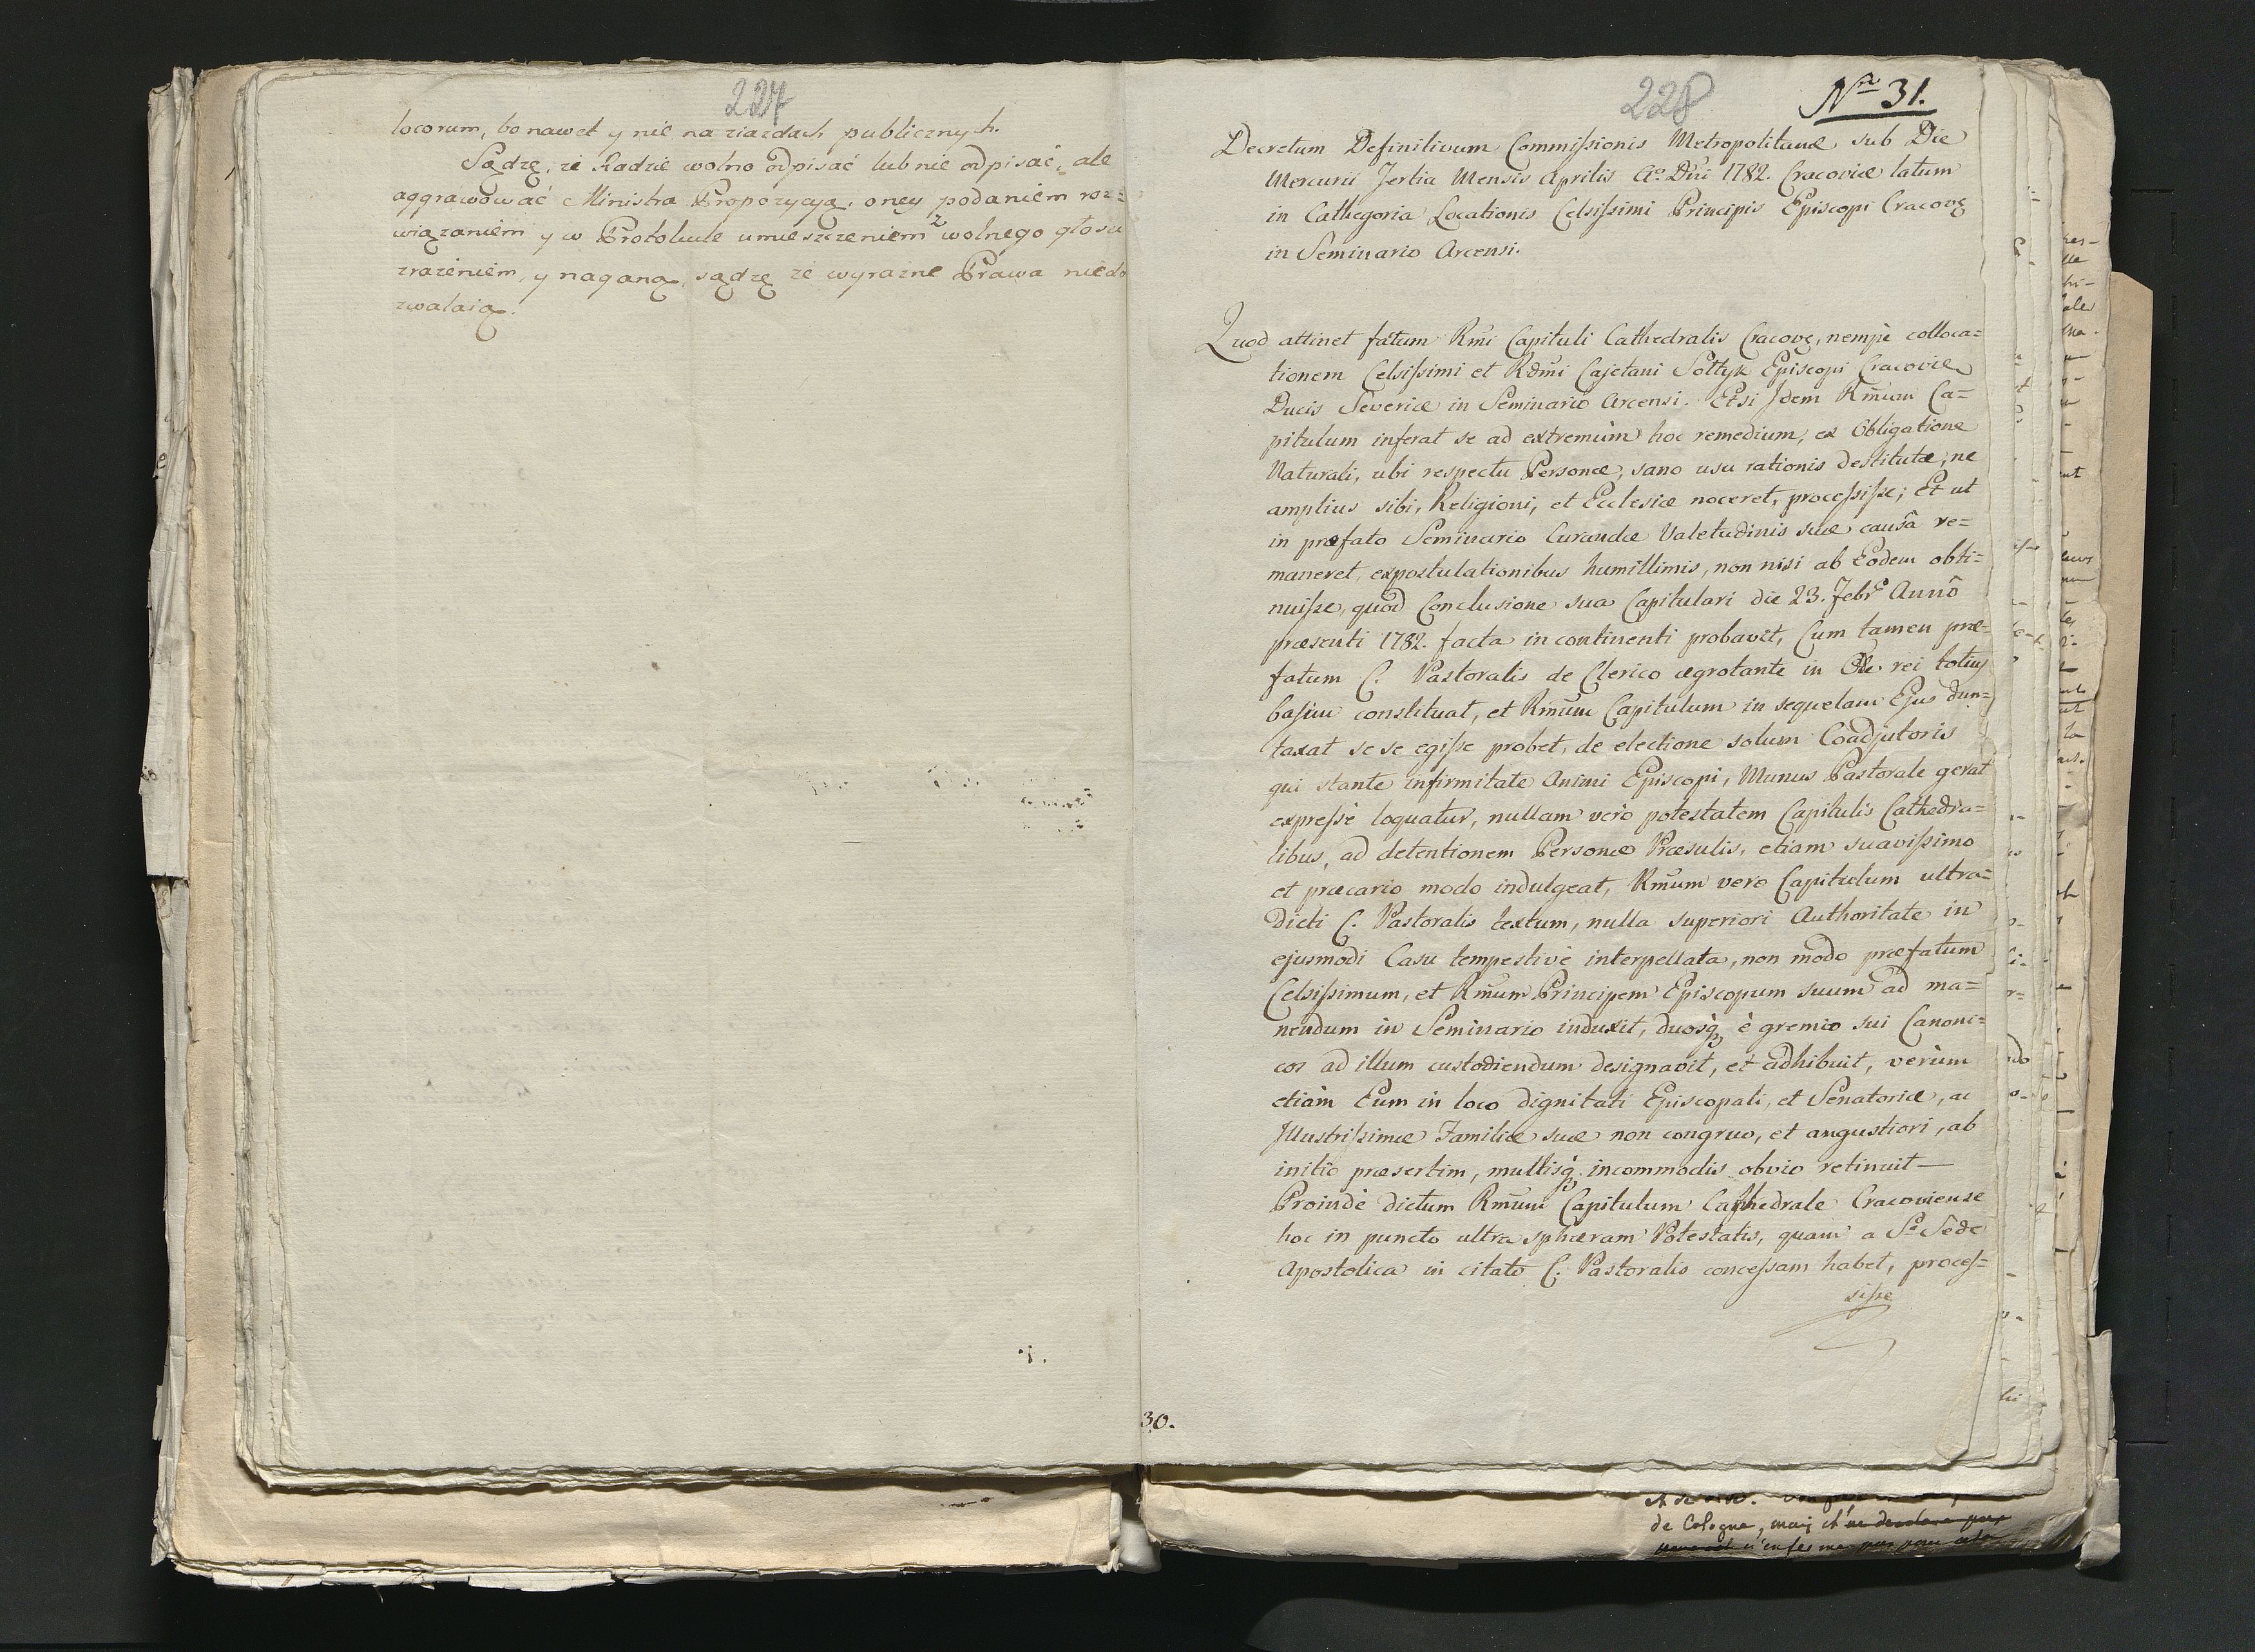 227
locorum, bo nawet y nie na ziazdach publicznych.
Sądzę, że Radzie wolno odpisać lub nie odpisać, ale
aggrawować Ministra Propozycyą, oney podaniem roz=
wiązaniem y w Protokule umieszczeniem z wolnego głosu
zrażeniem, y naganą, sądzę że wyrazne Prawa niedo
zwalaią.
228
Nro 31.
Decretum Definitivum Commissionis Metropolitanæ sub Die
Mercurii Tertia Mensis Aprilis Ao Dni 1782. Cracoviæ latum
in Cathegoria Locationis Celsissimi Principis Episcopi Cracovę
in Seminario Arcensi.
Quod attinet fatum Rmi Capituli Cathedralis Cracovę, nempè colloca=
tionem Celsissimi et Rdmi Cajetani Sołtyk Episcopi Cracoviæ
Ducis Severiæ in Seminario Arcensi. Etsi Idem Rmum Ca=
pitulum inferat se ad extremùm hoc remedium, ex Obligatione
Naturali, ubi respectu Personæ, sano usu rationis destitutæ, ne
amplius sibi, Religioni, et Ecclesiæ noceret, processisse; Et ut
in præfato Seminario Curandæ Valetudinis suæ causâ re=
maneret, expostulationibus humillimis, non nisi ab Eodem obti=
nuisse, quod Conclusione sua Capitulari die 23. Febre Annô
præsenti 1782. facta in continenti probavit, Cum tamen præ=
fatum C. Pastoralis de Clerico ægrotante in 6to rei totius
basim constituat, et Rmum Capitulum in sequelam Ejus dun=
taxat se se egisse probet, de electione solum Coadjutoris
qui stante infirmitate Animi Episcopi, Munus Pastorale gerat
expressè loquatur, nullam verò potestatem Capitulis Cathedra=
libus, ad detentionem Personæ Præsulis, etiam suavissimo
et præcario modo indulgeat, Rmum vero Capitulum ultra=
dicti C. Pastoralis textum, nulla superiori Authoritate in
ejusmodi Casu tempestivè interpellata, non modo præfatum
Celsissimum, et Rmum Principem Episcopum suum ad ma=
nendum in Seminario induxit, duosq è gremio sui Canoni=
cos ad illum custodiendum designavit, et adhibuit, verùm
etiàm Eum in loco dignitati Episcopali, et Senatoriæ, ac
Illustrissimæ Familiæ suæ non congruo, et angustiori, ab
initio præsertim, multisq incommodis obvio retinuit—
Proindè dictum Rmum Capitulum Cathedrale Cracoviense
hoc in puncto ultra sphæram Potestatis, quam a Sa Sede
Apostolica in citato C. Pastoralis concessam habet, proces=
sisse
30.
de Cologne, mais